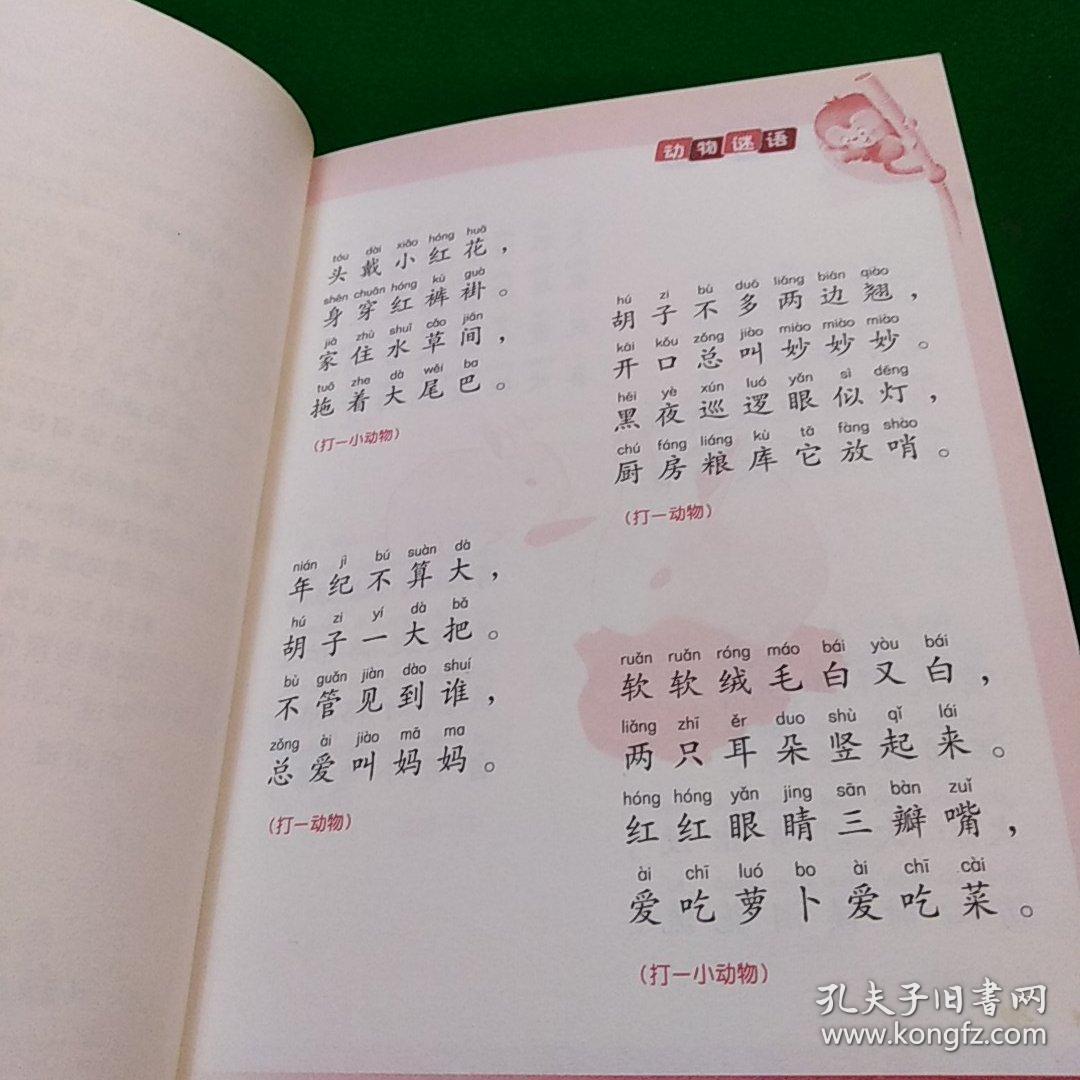 动物谜语
tóu dài xiǎo hóng huā
头戴小红花，
shēn chuān hóng kù guà
身穿红裤褂。
jiā zhù shuǐ cǎo jiān
家住水草间，
tuō zhe dà wěi ba
拖着大尾巴。
（打一小动物）
nián jì bú suàn dà
年纪不算大，
hú zi yí dà bǎ
胡子一大把。
bù guǎn jiàn dào shuí
不管见到谁，
zǒng ài jiào mā ma
总爱叫妈妈。
（打一动物）
hú zi bù duō liǎng biān qiào
胡子不多两边翘，
kāi kǒu zǒng jiào miào miào miào
开口总叫妙妙妙。
hēi yè xún luó yǎn sì dēng
黑夜巡逻眼似灯，
chú fáng liáng kù tā fàng shào
厨房粮库它放哨。
（打一动物）
ruǎn ruǎn róng máo bái yòu bái
软软绒毛白又白，
liǎng zhī ěr duo shù qǐ lái
两只耳朵竖起来。
hóng hóng yǎn jing sān bàn zuǐ
红红眼睛三瓣嘴，
ài chī luó bo ài chī cài
爱吃萝卜爱吃菜。
（打一小动物）
孔夫子旧书网
www.kongfz.com